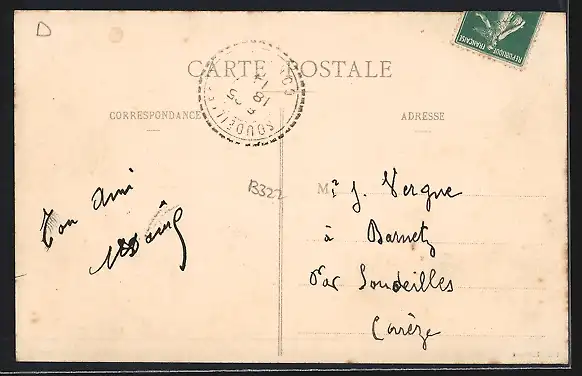 D
CARTE POSTALE
CORRESPONDANCE
ADRESSE
RÉPUBLIQUE FRANÇAISE
SOUDEILLES
18
B322
Ton ami
M. J. Vergne
à Barnetz
Par Soudeilles
Corrèze